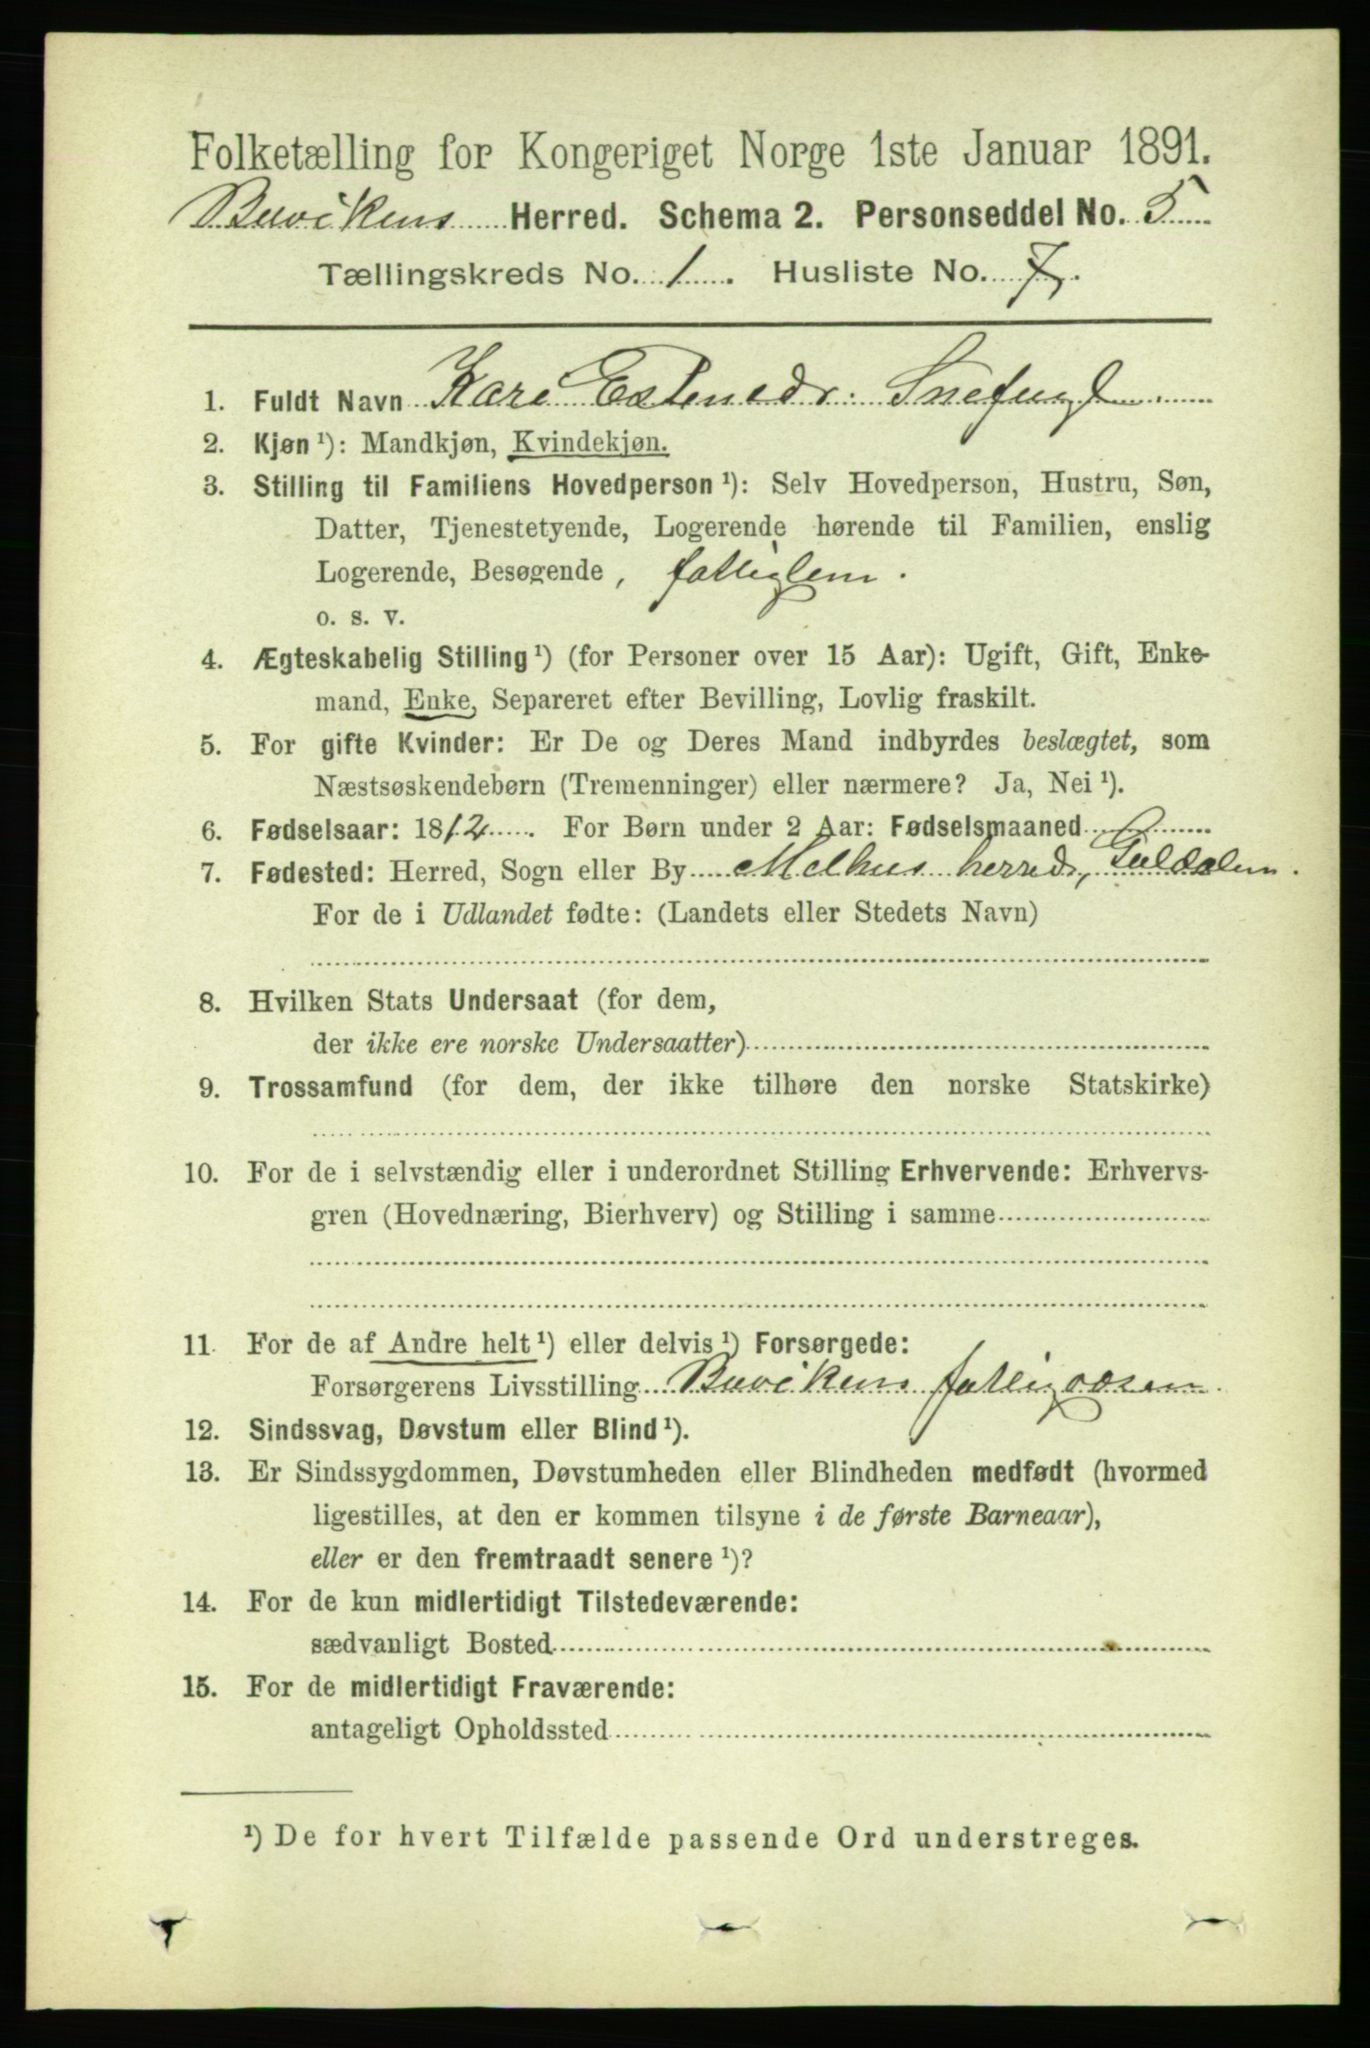 Folketælling for Kongeriget Norge 1ste Januar 1891.
Buvikens Herred. Schema 2. Personseddel No. 5
Tællingskreds No. 1. Husliste No. 7.
1. Fuldt Navn Kare Estensdr. Snefugl
2. Kjøn ¹): Mandkjøn, Kvindekjøn.
3. Stilling til Familiens Hovedperson ¹): Selv Hovedperson, Hustru, Søn,
Datter, Tjenestetyende, Logerende hørende til Familien, enslig
Logerende, Besøgende, fattiglem.
o. s. v.
4. Ægteskabelig Stilling ¹) (for Personer over 15 Aar): Ugift, Gift, Enke-
mand, Enke, Separeret efter Bevilling, Lovlig fraskilt.
5. For gifte Kvinder: Er De og Deres Mand indbyrdes beslægtet, som
Næstsøskendebørn (Tremenninger) eller nærmere? Ja, Nei ¹).
6. Fødselsaar: 1812. For Børn under 2 Aar: Fødselsmaaned
7. Fødested: Herred, Sogn eller By Melhus herred, Guldalen.
For de i Udlandet fødte: (Landets eller Stedets Navn)
8. Hvilken Stats Undersaat (for dem,
der ikke ere norske Undersaatter)
9. Trossamfund (for dem, der ikke tilhøre den norske Statskirke)
10. For de i selvstændig eller i underordnet Stilling Erhvervende: Erhvervs-
gren (Hovednæring, Bierhverv) og Stilling i samme
11. For de af Andre helt ¹) eller delvis ¹) Forsørgede:
Forsørgerens Livsstilling Buvikens fattigvæsen.
12. Sindssvag, Døvstum eller Blind ¹).
13. Er Sindssygdommen, Døvstumheden eller Blindheden medfødt (hvormed
ligestilles, at den er kommen tilsyne i de første Barneaar),
eller er den fremtraadt senere ¹)?
14. For de kun midlertidigt Tilstedeværende:
sædvanligt Bosted
15. For de midlertidigt Fraværende:
antageligt Opholdssted
¹) De for hvert Tilfælde passende Ord understreges.